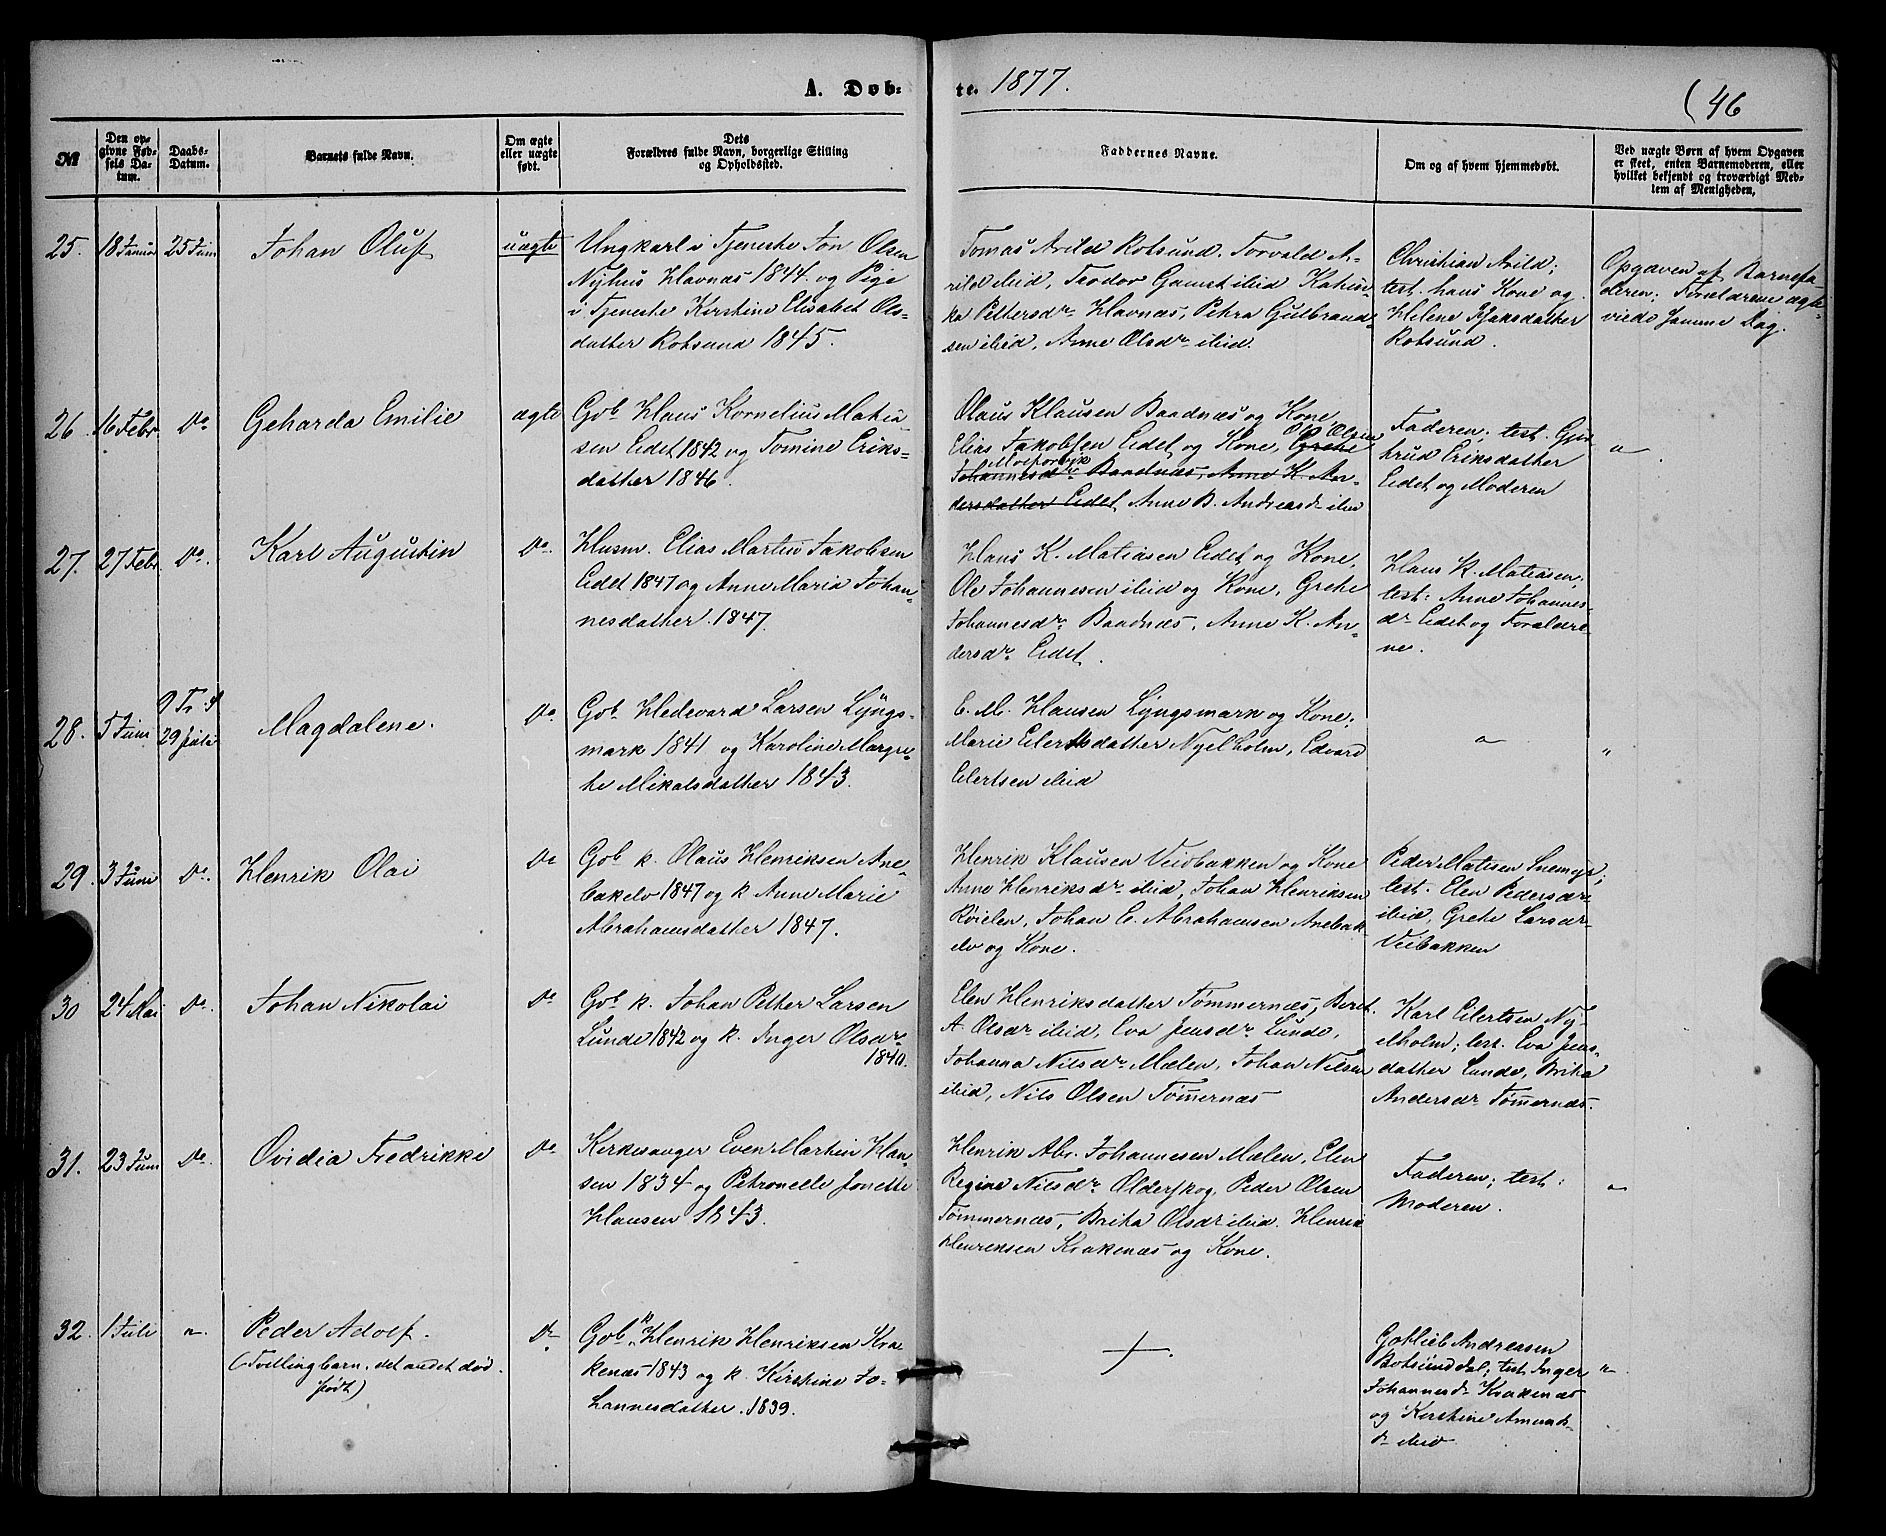 A. Døb=
te. 1877.
(46
№
Den op-
givne Fød-
sels Da-
tum.
Daabs-
Datum.
Barnets fulde Navn.
Om ægte
eller uægte
født.
Dets
Forældres fulde Navn, borgerlige Stilling
og Opholdssted.
Faddernes Navne.
Om og af hvem hjemmedøbt.
Ved uægte Børn af hvem Opgaven
er skeet, enten Barnemoderen, eller
hvilket bekjendt og troværdigt Med-
lem af Menigheden,
25.
18 Januar
25 Juni
Johan Oluf
uægte
Ungkarl i Tjeneste Jon Olsen
Nyhus Havnæs 1844. og Pige
i Tjeneste Kirstine Elisabet Ols-
datter Rotsund 1845.
Tomas Arild Rotsund. Torvald A-
rild ibid, Trodor Gamst ibid
ka Pettersdr Havnæs, Petra Gulbrand-
sen ibid, Anne Olsdr ibid.
Christian Arild;
test. hans Kone og
Helene Isaksdatter
Rotsund.
Opgaven af Barnefa-
deren; Forældrene ægte-
viede samme Dag.
26
16 Febr.
Do
Geharda Emilie
ægte
Gbr Hans Kornelius Matia
sen Eidet 1842 og Tomine Eriks-
datter 1846.
Olaus Klausen Baadnæs og Kone
Elias Jakobsen Eidet og Kone, Grethe
Ole Olsen
Johannesdr Baadnæs, Anne K. An-
dersdatter Eidet, Anne B. Andreasdr ibid
Faderen; test. Gun
hrud Eriksdatter
Eidet og Moderen
"
27.
27 Febr
Do.
Karl Augustin
Do.
Husm. Elias Martin Jakobsen
Eidet 1847 og Anne Maria Johan-
nesdatter. 1847.
Hans K. Matiasen Eidet og Kone,
Ole Johannesen ibid og Kone, Grethe
Johannesdr. Baadnæs, Anne K. An-
dersdr. Eidet.
Hans K. Matiasen;
test: Anne Johannes-
dr Eidet og Forældre-
ne.
28.
5 Juni
9 Tr. S
29 Juli
Magdalene.
Do
Gbr Hedevard Larsen Lyngs-
mark 1841 og Karoline Margre-
te Mikalsdatter 1843.
C. M. Hansen Lyngsmark og Kone,
Marie Eilertsdatter Nyelholm, Edvard
Eilertsen ibid
"
"
29.
3 Juni
Do.
Henrik Olai
Do
Gbr k. Olaus Henriksen Ane-
bakelv 1847 og k Anne Marie
Abrahamsdatter 1847.
Henrik Klausen Veidbakken og Kone
Anne Henriksdr ibid, Johan Henriksen
Røielen, Johan C. Abrahamsen Anebak-
elv og Kone.
Peder Matisen Snemyr;
test. Elen Pedersdr
ibid, Grete Larsdr
Veibakken
30
24 Mai
Do.
Johan Nikolai
Do
Gbr k. Johan Petter Larsen
Lunde 1842 og k. Inger Olsdr
1840.
Elen Henriksdatter Tømmernæs, Beret
A. Olsdr ibid, Eva Jensdr Lunde,
Johanna Nilsdr Mælen, Johan Nilsen
ibid, Nils Olsen Tømernæs
Karl Eilertsen Ny-
elholm; test. Eva Jens-
datter Lunde, Brita
Andersdr Tømernæs.
31.
23 Juni
Do.
Ovidia Fredrikke
Do
Kirkesanger Even Martin Han-
sen 1834 og Petronelle Jonette
Hansen 1843.
Henrik Abr. Johannesen Mælen, Elen
Regine Nilsdr Olderskog, Peder Olsen
Tømmernæs, Brita Olsdr ibid. Henrik
Henriksen Krakenæs og Kone.
Faderen; test:
Moderen.
"
32.
1 Juli
"
Peder Adolf.
(Tvillingbarn, det andet død
født)
Do
Gbr k Henrik Henriksen Kra
kenæs 1843 og k. Kirstine Jo-
hannesdatter. 1839.
+.
Gotlieb Andreasen
Rotsunddal; test. Inger
Johannesdr Krakenæs
og Kirstine Amunds-
dr ibid
"